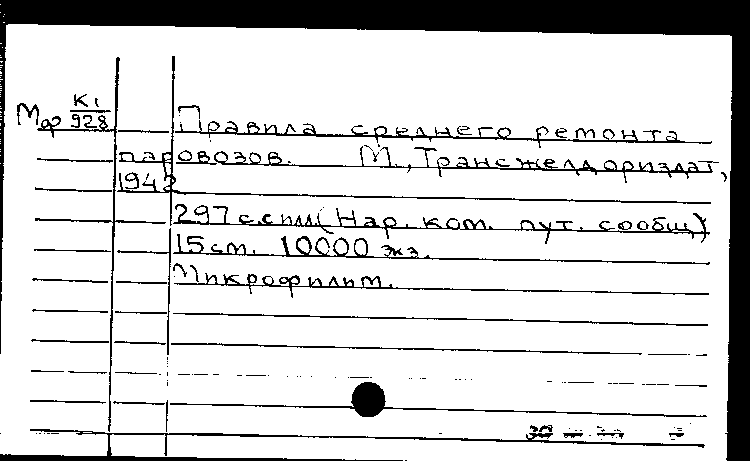 Мф К1/928
Правила среднего ремонта
паровозов. М., Трансжелдориздат,
1942
297 с. с илл (Нар. ком. пут. сообщ)
15 см. 10000 экз.
Микрофильм.